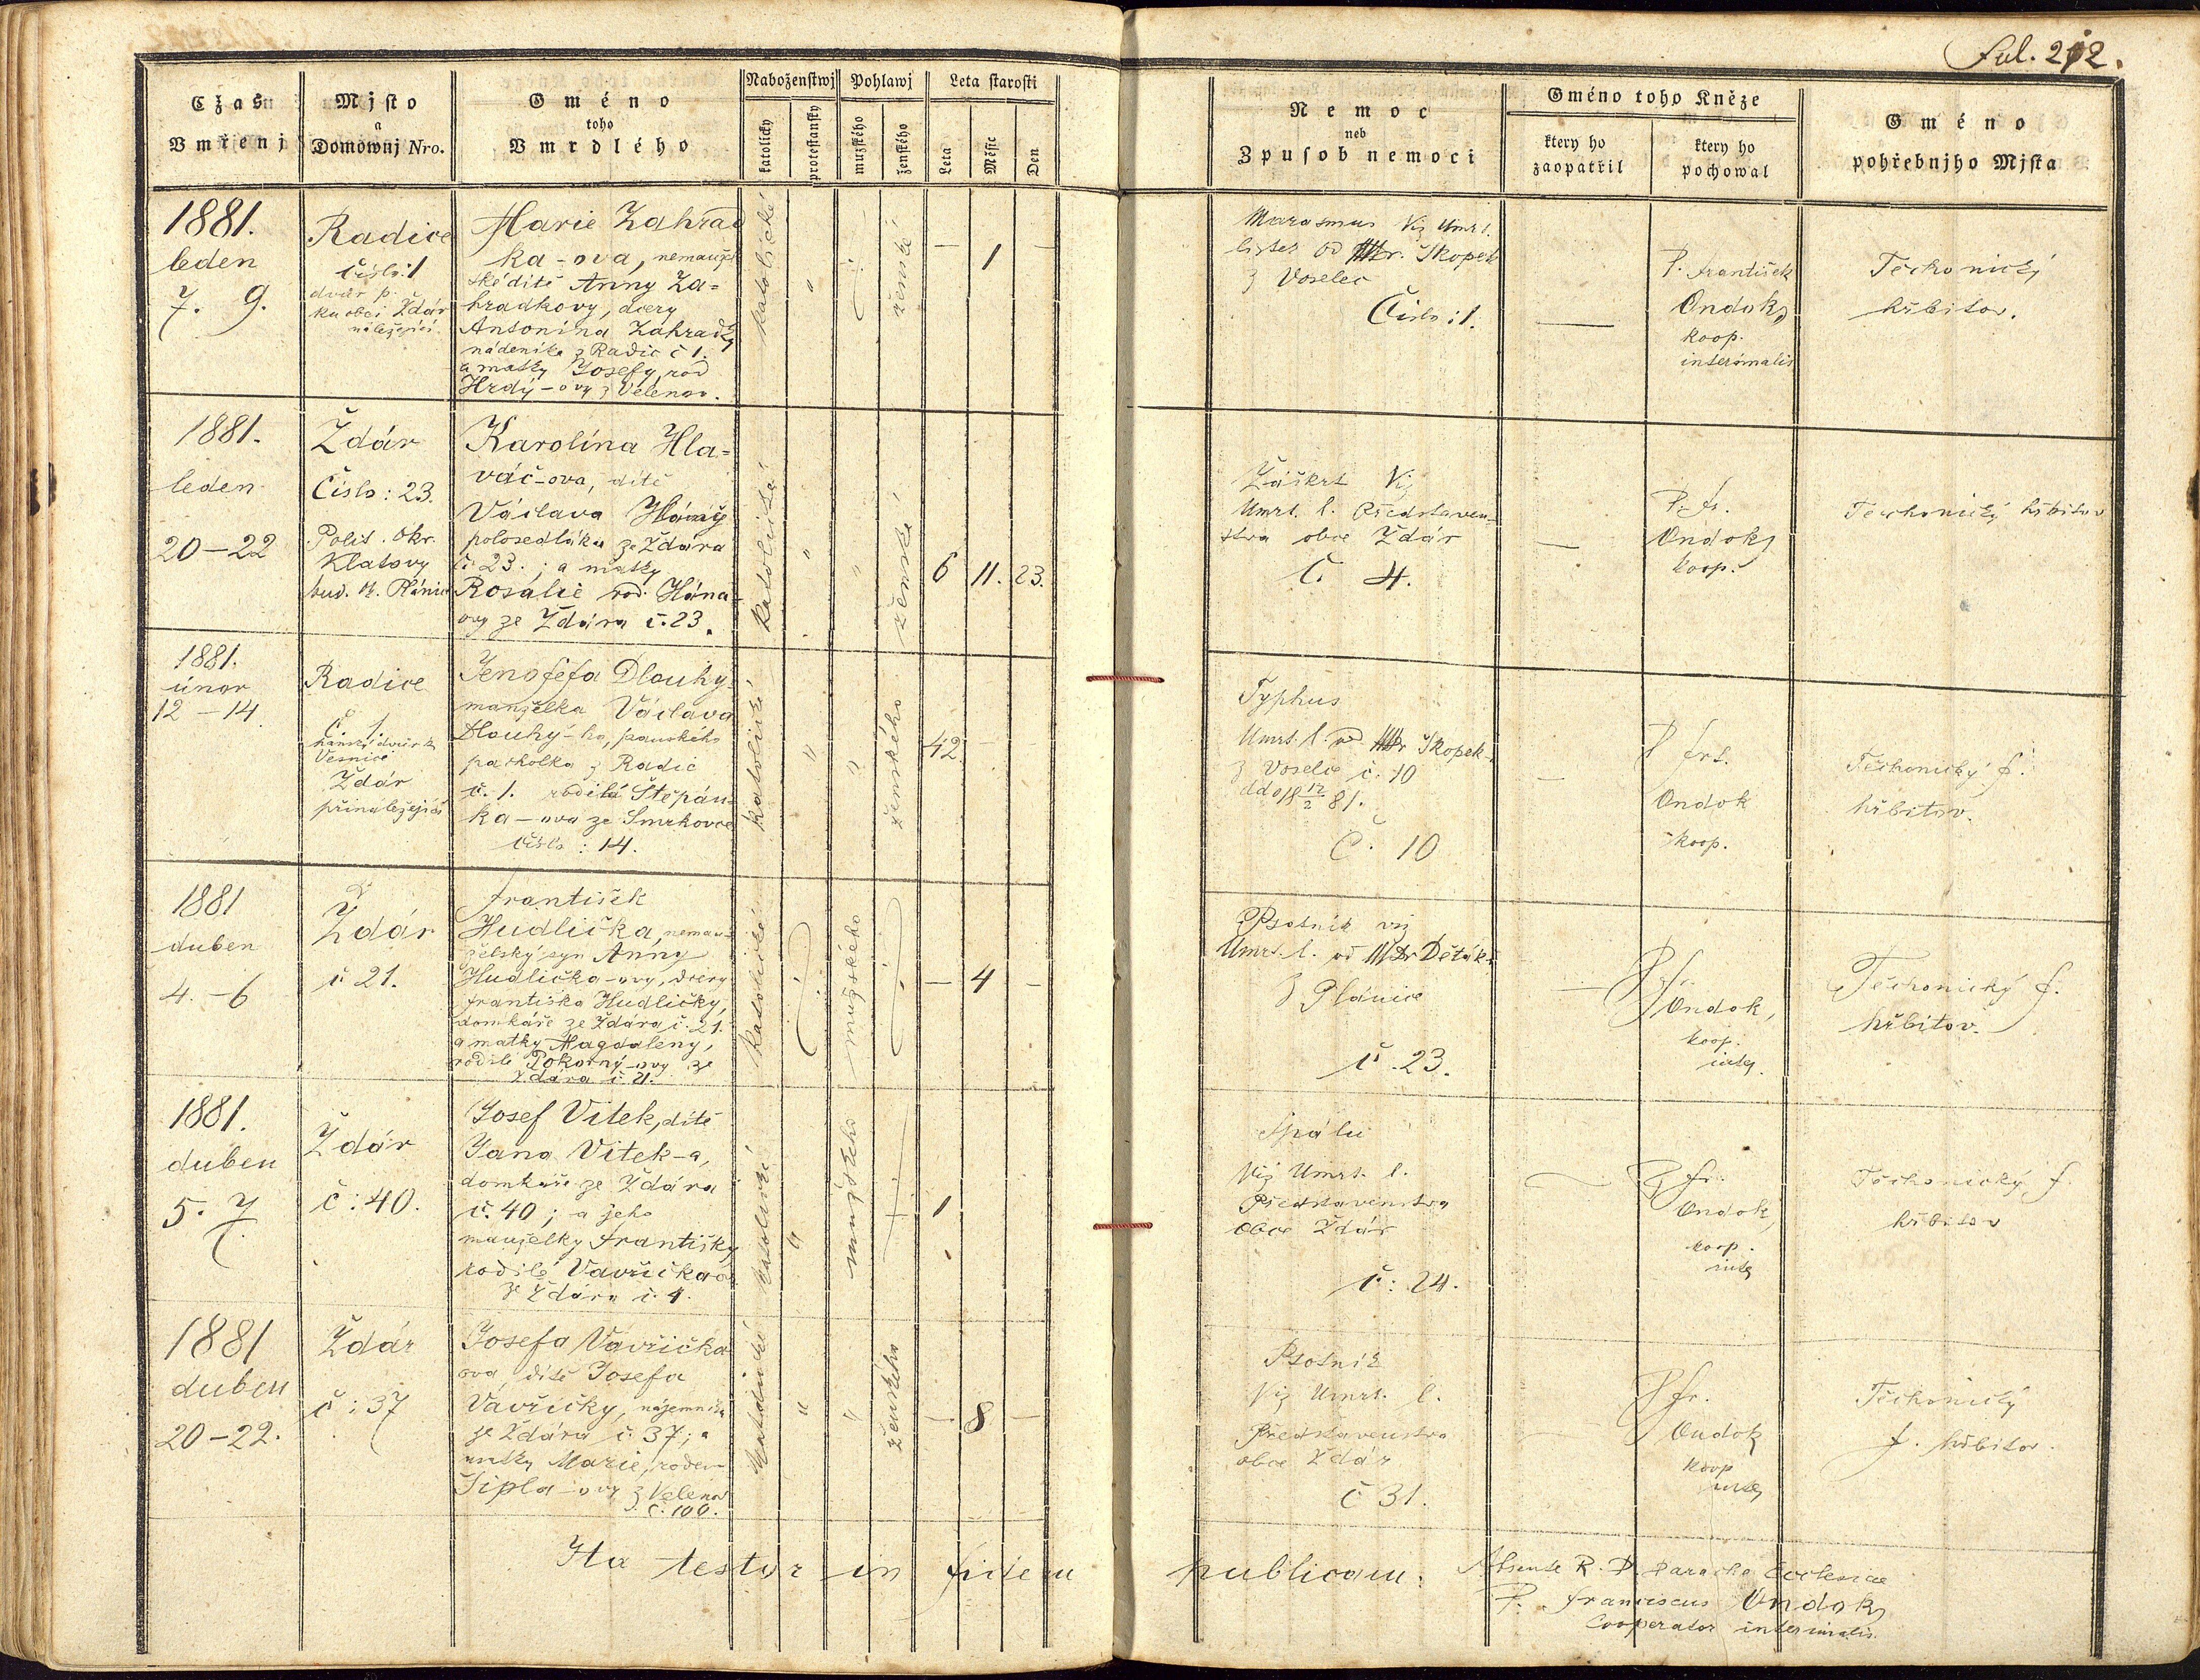 Ful. 212.
Cžas
Vmřenj
Mjsto
a
Domownj Nro.
Gméno
toho
Vmrdlého
Naboženstwj
katolicky
protestansky
Pohlawj
mužského
ženského
Leta starosti
Leta
Měsic
Den
Nemoc
neb
Zpusob nemoci
Gméno toho Kněze
ktery ho
zaopatřil
ktery ho
pochowal
Gméno
pohřebnjho Mjsta
1881.
leden
7. 9.
Radice
číslo: 1
dvůr p.
ku obci Ždár
náležející
Marie Zahrad
ka-ova, nemanžel
ské dítě Anny Za=
hradkovy, dcery
Antonína Zahradky
nádeníka z Radic č 1.
a matky Josefy, rod
Hrdý-ovy z Velenov.
katolické
"
ženské
—
1
—
Marasmus Viz Umrt.
lister od MDr. Skopek
z Voselec
Číslo: 1.
—
P. František
Ondok,
koop.
interimalis
Těchonický
hřbitov.
1881.
leden
20–22
Ždár
Číslo: 23.
Polit. okr.
Klatovy
soud. o. Plánice
Karolína Hla=
váč-ova, dítě
Václava Hlaváč
polosedláka ze Ždára
č. 23.; a matky
Rosalie rod. Hána-
ovy ze Ždára č. 23.
katolická
"
"
ženské
6
11.
23.
Záškrt Viz
Umrt. l. Představen-
stva obce Ždár
Č. 4.
—
P. fr.
Ondok,
koop.
Těchonický hřbitov
1881.
únor
12–14.
Radice
Č. 1.
panský dvůr k
Vesnici
Ždár
přináležející
Jenofefa Dlouhý-
manželka Václava
Dlouhý-ho, panského
pacholka z Radic
č. 1. rodilá Štěpán-
ka-ova ze Smrkovce
číslo: 14.
katolické
"
"
ženského
42
—
Typhus
Umrt. l. od MDr Skopek-
z Voselec č. 10
ddo 18 12/2 81.
Č. 10
—
P frt.
Ondok
koop.
Těchonický f.
hřbitov.
1881
duben
4.–6
Ždár
č 21.
František
Hudlička, neman-
želský syn Anny
Hudlička-ovy, dcery
Františka Hudličky,
domkáře ze Ždára č. 21.
a matky Magdaleny,
rodilé Pokorný-ovy ze
Ždára č. 21.
katolické
mužského
—
4
—
Psotník viz
Umrt. l. od MDr Děták-
z Plánice
č. 23.
—
P fr.
Ondok,
koop.
inter.
Těchonický f.
hřbitov.
1881.
duben
5. 7.
Ždár
č: 40.
Josef Vitek, dítě
Jana Vitek-a,
domkáře ze Ždára
č. 40; a jeho
manželky Františky
rodilé Vavřička-ov
ze Ždára č. 4.
katolické
"
mužského
1
Spála
Viz Umrt. l.
Představenstva
obce Ždár
č: 24.
P fr.
Ondok,
koop.
inter
Těchonický f.
hřbitov
1881
duben
20–22.
Ždár
č: 37
Josefa Vavřička
ova, dítě Josefa
Vavřičky, nájemníka
ze Ždára č. 37; a
matky Marie, rozen-
Šipla-ovy z Velenov
č. 100.
katolické
"
"
ženského
—
8
—
Psotník
Viz Umrt. l.
Představenstva
obce Ždár
č 31.
P fr.
Ondok
koop
inter
Těchonický
f. hřbitov.
Ita testor in fidem publicam. Absente R. D. Paracho Ecclesiae
P. Franciscus Ondok,
Cooperator interimalis.